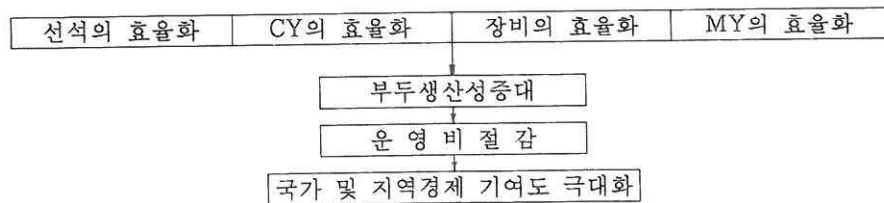 선석의 효율화 CY의 효율화 장비의 효율화 MY의 효율화
부두생산성증대
운 영 비 절 감
국가 및 지역경제 기여도 극대화